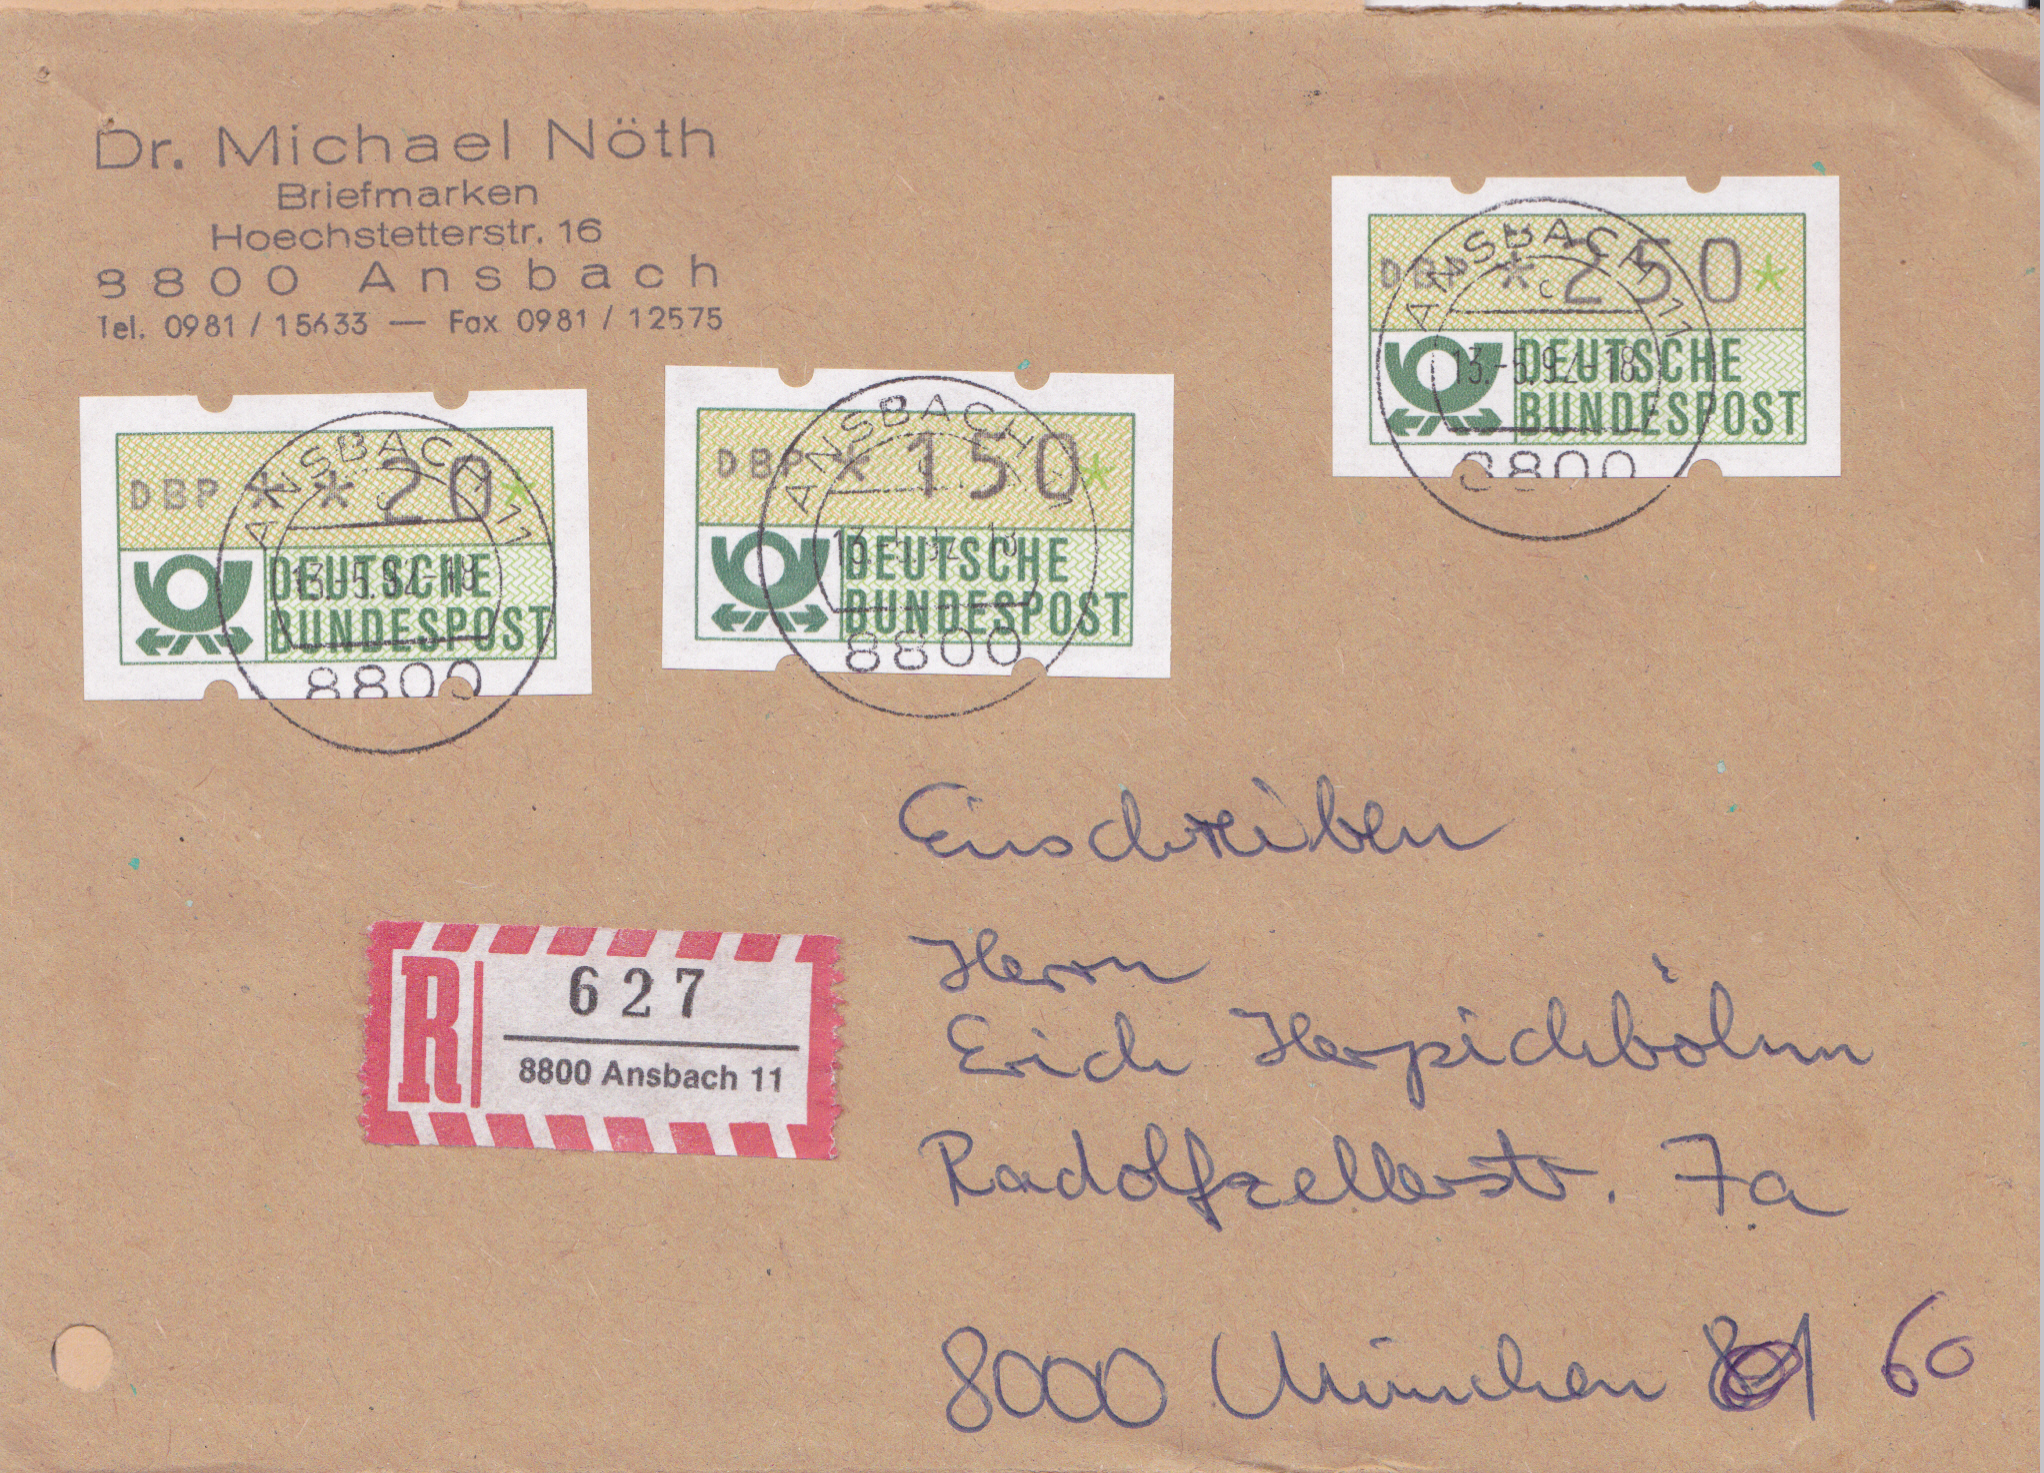 Dr. Michael Nöth
Briefmarken
Hoechstetterstr. 16
8800 Ansbach
Tel. 0981 / 15633 — Fax 0981 / 12575
DBP *250*
DEUTSCHE
BUNDESPOST
ANSBACH 11
c
13.-5.92-18
8800
DBP **20*
DEUTSCHE
BUNDESPOST
ANSBACH 11
c
13.-5.92-18
8800
DBP *150*
DEUTSCHE
BUNDESPOST
ANSBACH 11
c
13.-5.92-18
8800
Einschreiben
R
627
8800 Ansbach 11
Herrn
Erich Herpichböhm
Radolfzellerstr. 7a
8000 München 60